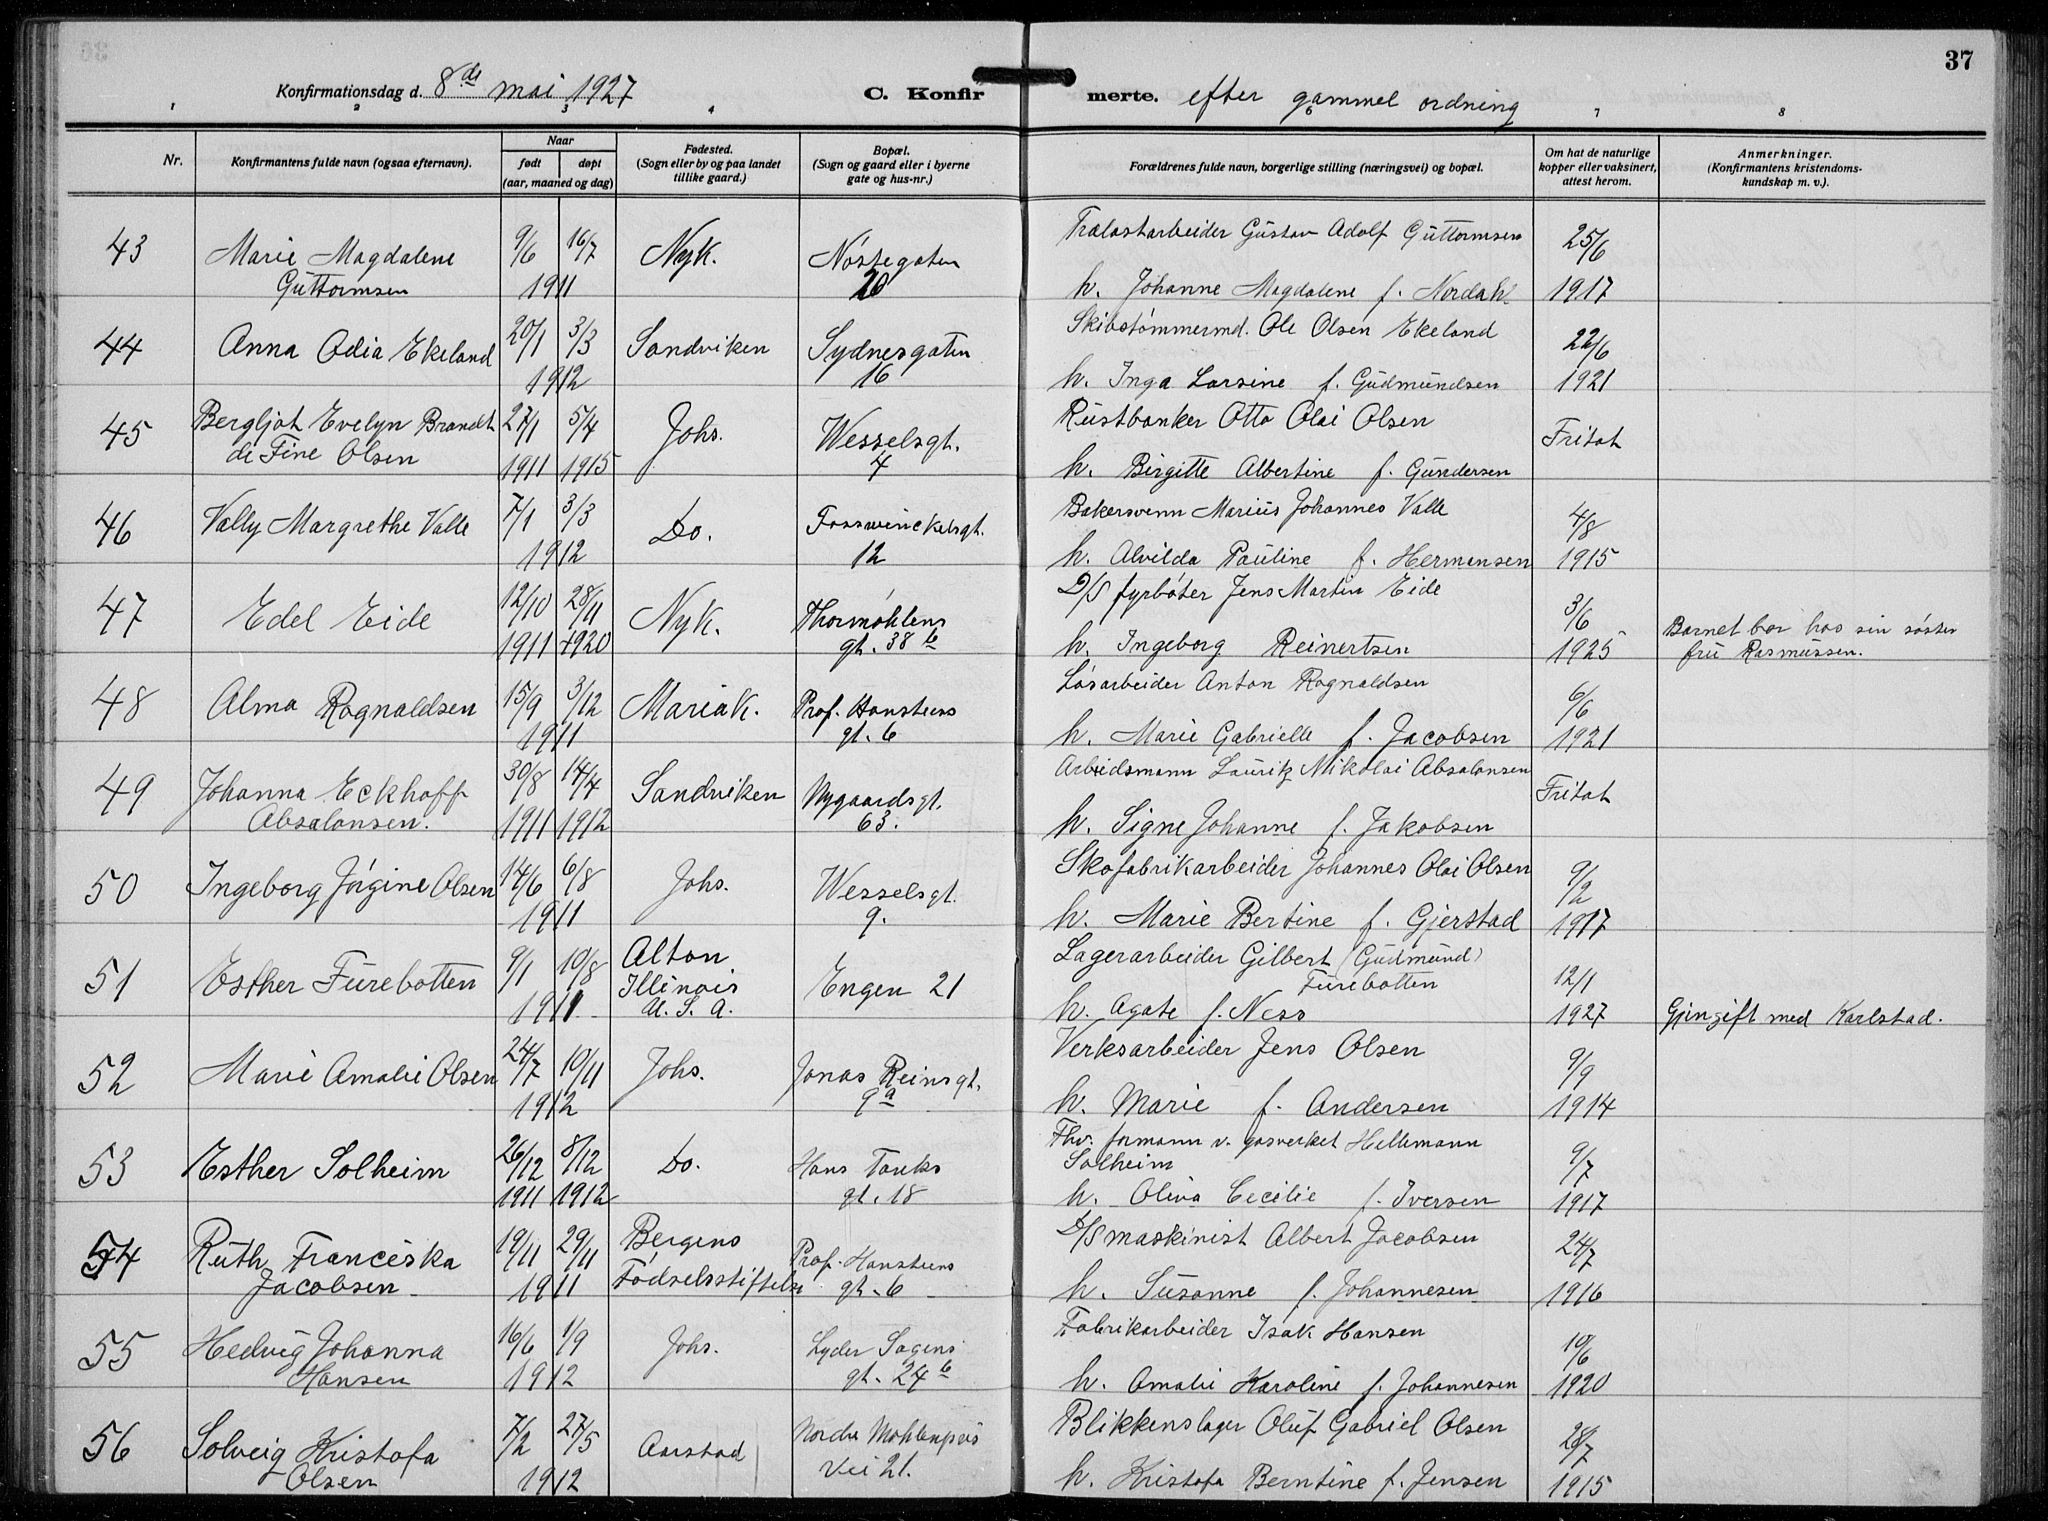 37
Konfirmationsdag d. 8de mai 1927 C. Konfirmerte. efter gammel ordning
1 2 3 4 6 7 8
Nr. Konfirmantens fulde navn (ogsaa efternavn). Naar født døpt (aar, maaned og dag) Fødested. (Sogn eller by og paa landet tillike gaard.) Bopæl. (Sogn og gaard eller i byerne gate og hus-nr.) Forældrenes fulde navn, borgerlige stilling (næringsvei) og bopæl. Om hat de naturlige kopper eller vaksinert, attest herom. Anmerkninger. (Konfirmantens kristendomskundskap m. v.).
43 Marie Magdalene 9/6 16/7 Nyk. Nøstegaten Trælastarbeider Gustav Adolf Guttormsen 25/6
Guttormsen 1911 20 h. Johanne Magdalene f. Nordahl 1917
44 Anna Odia Ekeland 20/1 3/3 Sandviken Sydnesgaten Skibstømmermd. Ole Olsen Ekeland 22/6
1912 16 h. Inga Larsine f. Gudmundsen 1921
45 Bergljot Evelyn Brandt 27/1 5/4 Johs. Wesselsgt. Rustbanker Otto Olai Olsen Fritat
de Fine Olsen 1911 1915 4 h. Birgitte Albertine f. Gundersen
46 Vally Margrethe Valle 7/1 3/3 Do. Fosswinckelsgt. Bakersvenn Marius Johannes Valle 4/8
1912 12 h. Alvilda Pauline f. Hermansen 1915
47 Edel Eide 12/10 28/11 Nyk. Thormøhlens D/S fyrbøter Jens Martin Eide 3/6 Barnet bor hos sin søster
1911 1920 gt. 38 b h. Ingeborg Reinertsen 1925 fru Rasmussen.
48 Alma Ragnaldsen 15/9 3/12 Mariak. Prof. Hansteens Løsarbeider Anton Ragnaldsen 6/6
1911 gt. 6 h. Marie Gabrielle f. Jacobsen 1921
49 Johanna Eckhoff 30/8 14/4 Sandviken Nygaardsgt. Arbeidsmann Lauritz Mikolai Absalonsen Fritat
Absalonsen. 1911 1912 63. h. Signe Johanne f. Jakobsen
50 Ingeborg Jørgine Olsen 14/6 6/8 Johs. Wesselsgt. Skofabrikarbeider Johannes Olai Olsen 9/2
1911 9. h. Marie Bertine f. Gjerstad 1917
51 Esther Furebotten 9/1 10/8 Alton Engen 21 Lagerarbeider Gilbert (Gudmund) 12/1
Illinois Furebotten
1911 U. S. A. h. Agate f. Ness 1927 Gjengift med Karlstad.
52 Marie Amalie Olsen 24/7 10/11 Johs. Jonas Reinsgt. Verksarbeider Jens Olsen 9/9
1912 9 a h. Marie f. Andersen 1914
53 Esther Solheim 26/12 8/12 Do. Hans Tanks Fhv. formann v. gasverket Hellemann 9/7
Solheim
1911 1912 gt. 18 h. Oliva Cecilie f. Iversen 1917
54 Ruth Franceska 19/11 29/11 Bergens Prof. Hansteens D/S maskinist Albert Jacobsen 24/7
Jacobsen 1911 Fødselsstiftelse gt. 6 h. Susanne f. Johannesen 1916
55 Hedvig Johanna 16/6 1/9 Johs. Lyder Sagens Fabrikarbeider Isak Hansen 10/6
Hansen 1912 gt. 24 b h. Amalie Karoline f. Johannesen 1920
56 Solveig Kristofa 7/2 27/5 Aarstad Nordre Møhlenpris Blikkenslager Oluf Gabriel Olsen 28/7
Olsen 1912 Vei 21. h. Kristofa Berntine f. Jensen 1915